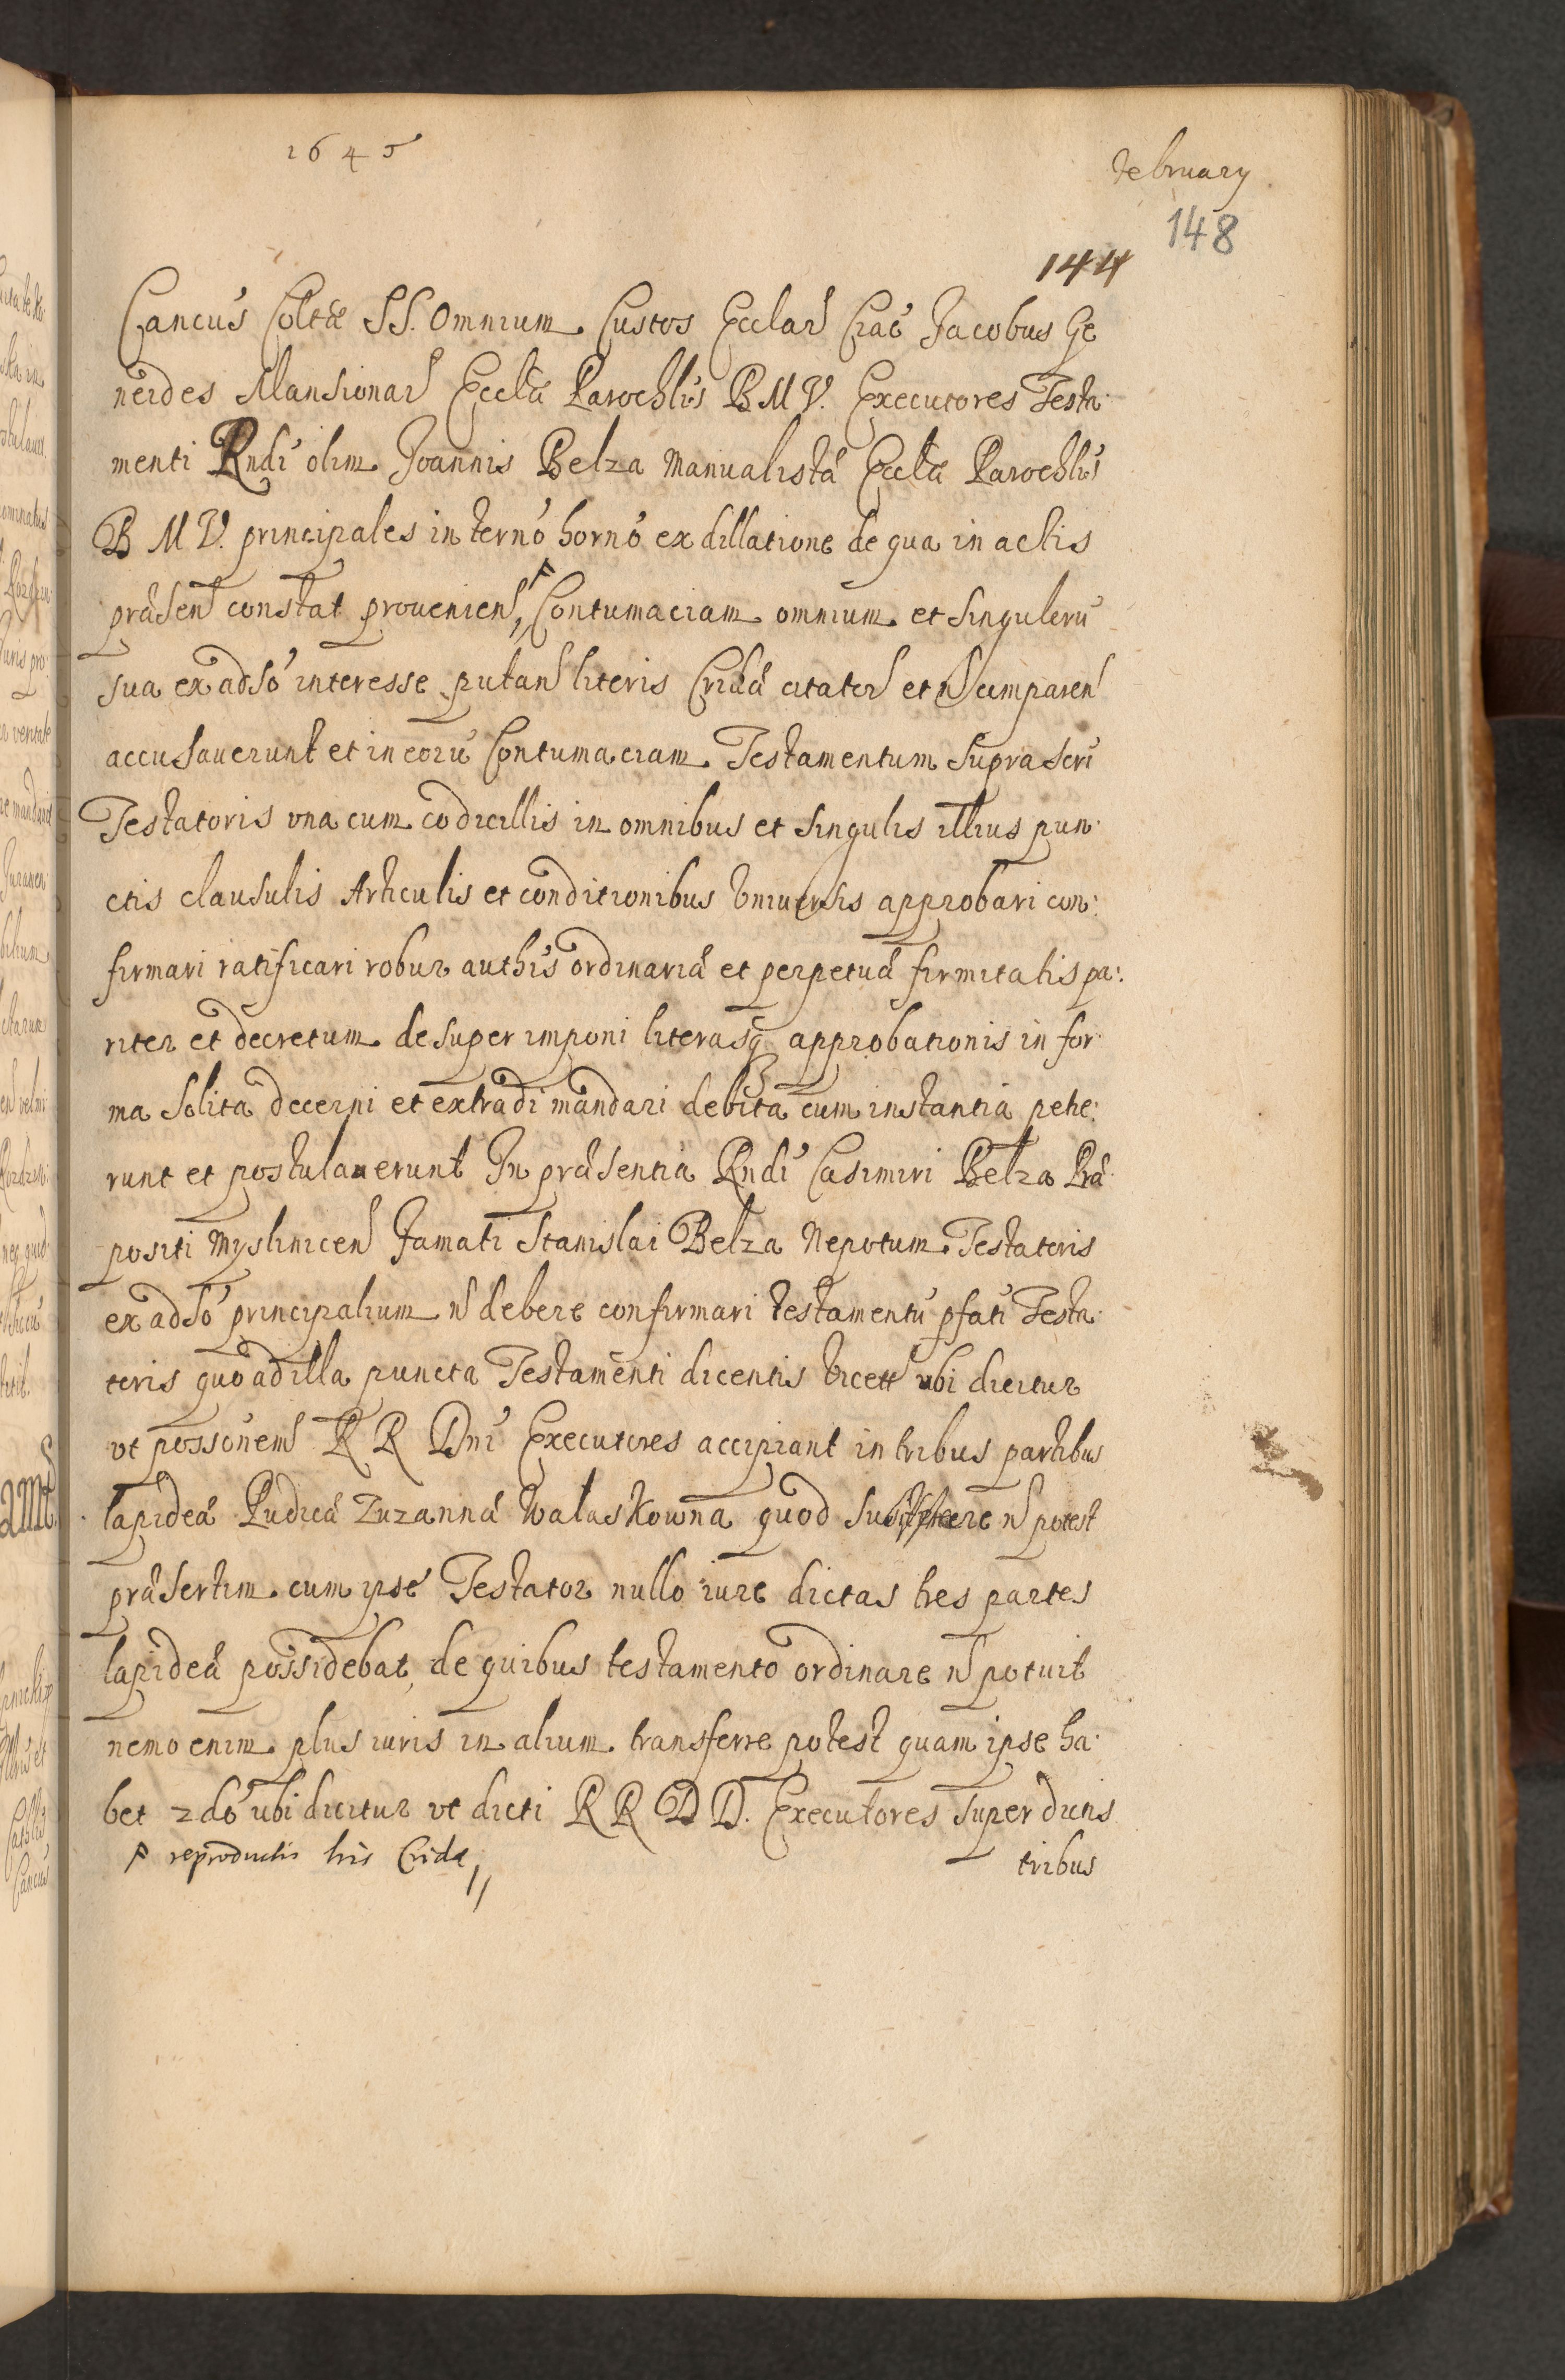 1645
February
148
144
Cancus Coltæ SS. Omnium Custos Ecclar Crac Jacobus Ge
nerdes Mansionar Ecclæ Parochlis B M V. Executores Testa
menti Rndi olim Joannis Belza Manualistæ Ecclæ Parochlis
B M V. principales in termo horno ex dillatione de qua in actis
præsen constat provenien, Contumaciam omnium et singuloru
sua ex adso interesse putan literis Cridæ citator et n comparen
accusaverunt et in eoru Contumaciam Testamentum supra scri
Testatoris una cum codicillis in omnibus et singulis illius pun
ctis clausulis Articulis et conditionibus Universis approbari con:
firmari ratificari robur authis ordinariæ et perpetuæ firmitatis pa:
riter et decretum desuper imponi literasq approbationis in for
ma solita decerni et extradi mandari debita cum instantia petie:
runt et postulaverunt In præsentia Rndi Casimiri Belza Præ
positi Myslinicen Famati Stanislai Belza Nepotum Testatoris
ex adso principalium n debere confirmari testamentu pfati Testa
toris quo ad illa puncta Testamenti dicentis ubi dicitur
ut possonem R R Dni Executores accipiant in tribus partibus
lapideæ Pudicæ Zuzannæ Walaskowna quod n potest
præsertim cum ipse Testator nullo iure dictas tres partes
lapideæ possidebat, de quibus testamento ordinare n potuit
nemo enim plus iuris in alium transferre potest quam ipse ha
bet 2do ubi dicitur ut dicti R R D D. Executores super dictis
reproductis lris Cridæ
tribus